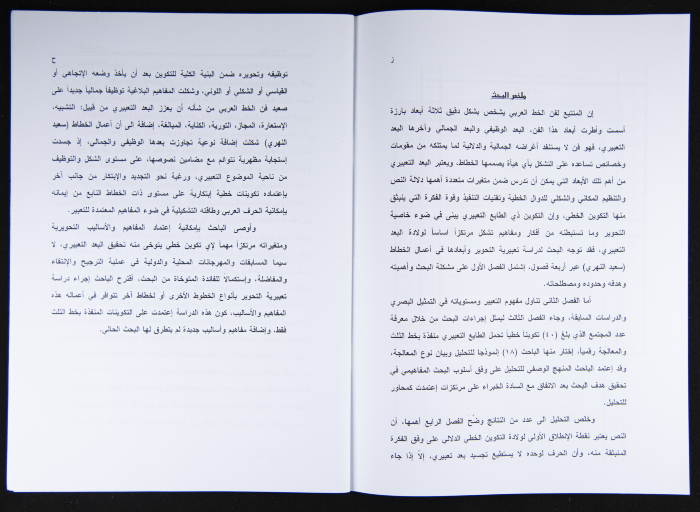 ز
ملخص البحث
إن المتتبع لفن الخط العربي يشخص بشكل دقيق ثلاثة أبعاد بارزة
أسست وأطرت أبعاد هذا الفن، البعد الوظيفي والبعد الجمالي وآخرها البعد
التعبيري، فهو فن لا يستنفد أغراضه الجمالية والدلالية لما يمتلكه من مقومات
وخصائص تساعده على التشكل بأي هيأة يصممها الخطاط، ويعتبر البعد التعبيري
من أهم تلك الأبعاد التي يمكن أن تدرس ضمن متغيرات متعددة أهمها دلالة النص
والتنظيم المكاني والشكلي للدوال الخطية وتقنيات التنفيذ وقوة الفكرة التي ينبثق
منها التكوين الخطي، وإن التكوين ذي الطابع التعبيري يبنى في ضوء خاصية
التحوير وما تستبطنه من أفكار ومفاهيم تشكل مرتكزاً اساساً لولادة البعد
التعبيري، فقد توجه البحث لدراسة تعبيرية التحوير وأبعادها في أعمال الخطاط
(سعيد النهري) عبر أربعة فصول، إشتمل الفصل الأول على مشكلة البحث وأهميته
وهدفه وحدوده ومصطلحاته.
أما الفصل الثاني تناول مفهوم التعبير ومستوياته في التمثيل البصري
والدراسات السابقة، وجاء الفصل الثالث ليمثل إجراءات البحث من خلال معرفة
عدد المجتمع الذي بلغ (٤٠) تكويناً خطياً تحمل الطابع التعبيري منفذة بخط الثلث
والمعالجة رقمياً، إختار منها الباحث (١٨) إنموذجا للتحليل وبيان نوع المعالجة،
وقد إعتمد الباحث المنهج الوصفي للتحليل على وفق أسلوب البحث المفاهيمي في
تحقيق هدف البحث بعد الاتفاق مع السادة الخبراء على مرتكزات إعتمدت كمحاور
للتحليل.
وخلص التحليل الى عدد من النتائج وضّح الفصل الرابع أهمها، أن
النص يعتبر نقطة الإنطلاق الأولى لولادة التكوين الخطي الدلالي على وفق الفكرة
المنبثقة منه، وأن الحرف لوحده لا يستطيع تجسيد بعد تعبيري، إلاّ إذا جاء
ح
توظيفه وتحويره ضمن البنية الكلية للتكوين بعد أن يأخذ وضعه الإتجاهي أو
القياسي أو الشكلي أو اللوني، وشكلت المفاهيم البلاغية توظيفاً جمالياً جديداً على
صعيد فن الخط العربي من شأنه أن يعزز البعد التعبيري من قبيل: التشبيه،
الإستعارة، المجاز، التورية، الكناية، المبالغة، إضافة الى أن أعمال الخطاط (سعيد
النهري) شكلت إضافة نوعية تجاوزت بعدها الوظيفي والجمالي، إذ جسدت
إستجابة مظهرية تتوائم مع مضامين نصوصها، على مستوى الشكل والتوظيف
من ناحية الموضوع التعبيري، ورغبة نحو التجديد والإبتكار من جانب آخر
بإعتماده تكوينات خطية إبتكارية على مستوى ذات الخطاط النابع من إيمانه
بإمكانية الحرف العربي وطاقته التشكيلية في ضوء المفاهيم المعتمدة للتعبير.
وأوصى الباحث بإمكانية إعتماد المفاهيم والأساليب التحويرية
ومتغيراته مرتكزاً مهماً لإي تكوين خطي يتوخى منه تحقيق البعد التعبيري، لا
سيما المسابقات والمهرجانات المحلية والدولية في عملية الترجيح والإنتقاء
والمفاضلة، وإستكمالا للفائدة المتوخاة من البحث، أقترح الباحث إجراء دراسة
تعبيرية التحوير بأنواع الخطوط الأخرى أو لخطاط آخر تتوافر في أعماله هذه
المفاهيم والأساليب، كون هذه الدراسة إعتمدت على التكوينات المنفذة بخط الثلث
فقط، وإضافة مفاهيم وأساليب جديدة لم يتطرق لها البحث الحالي.